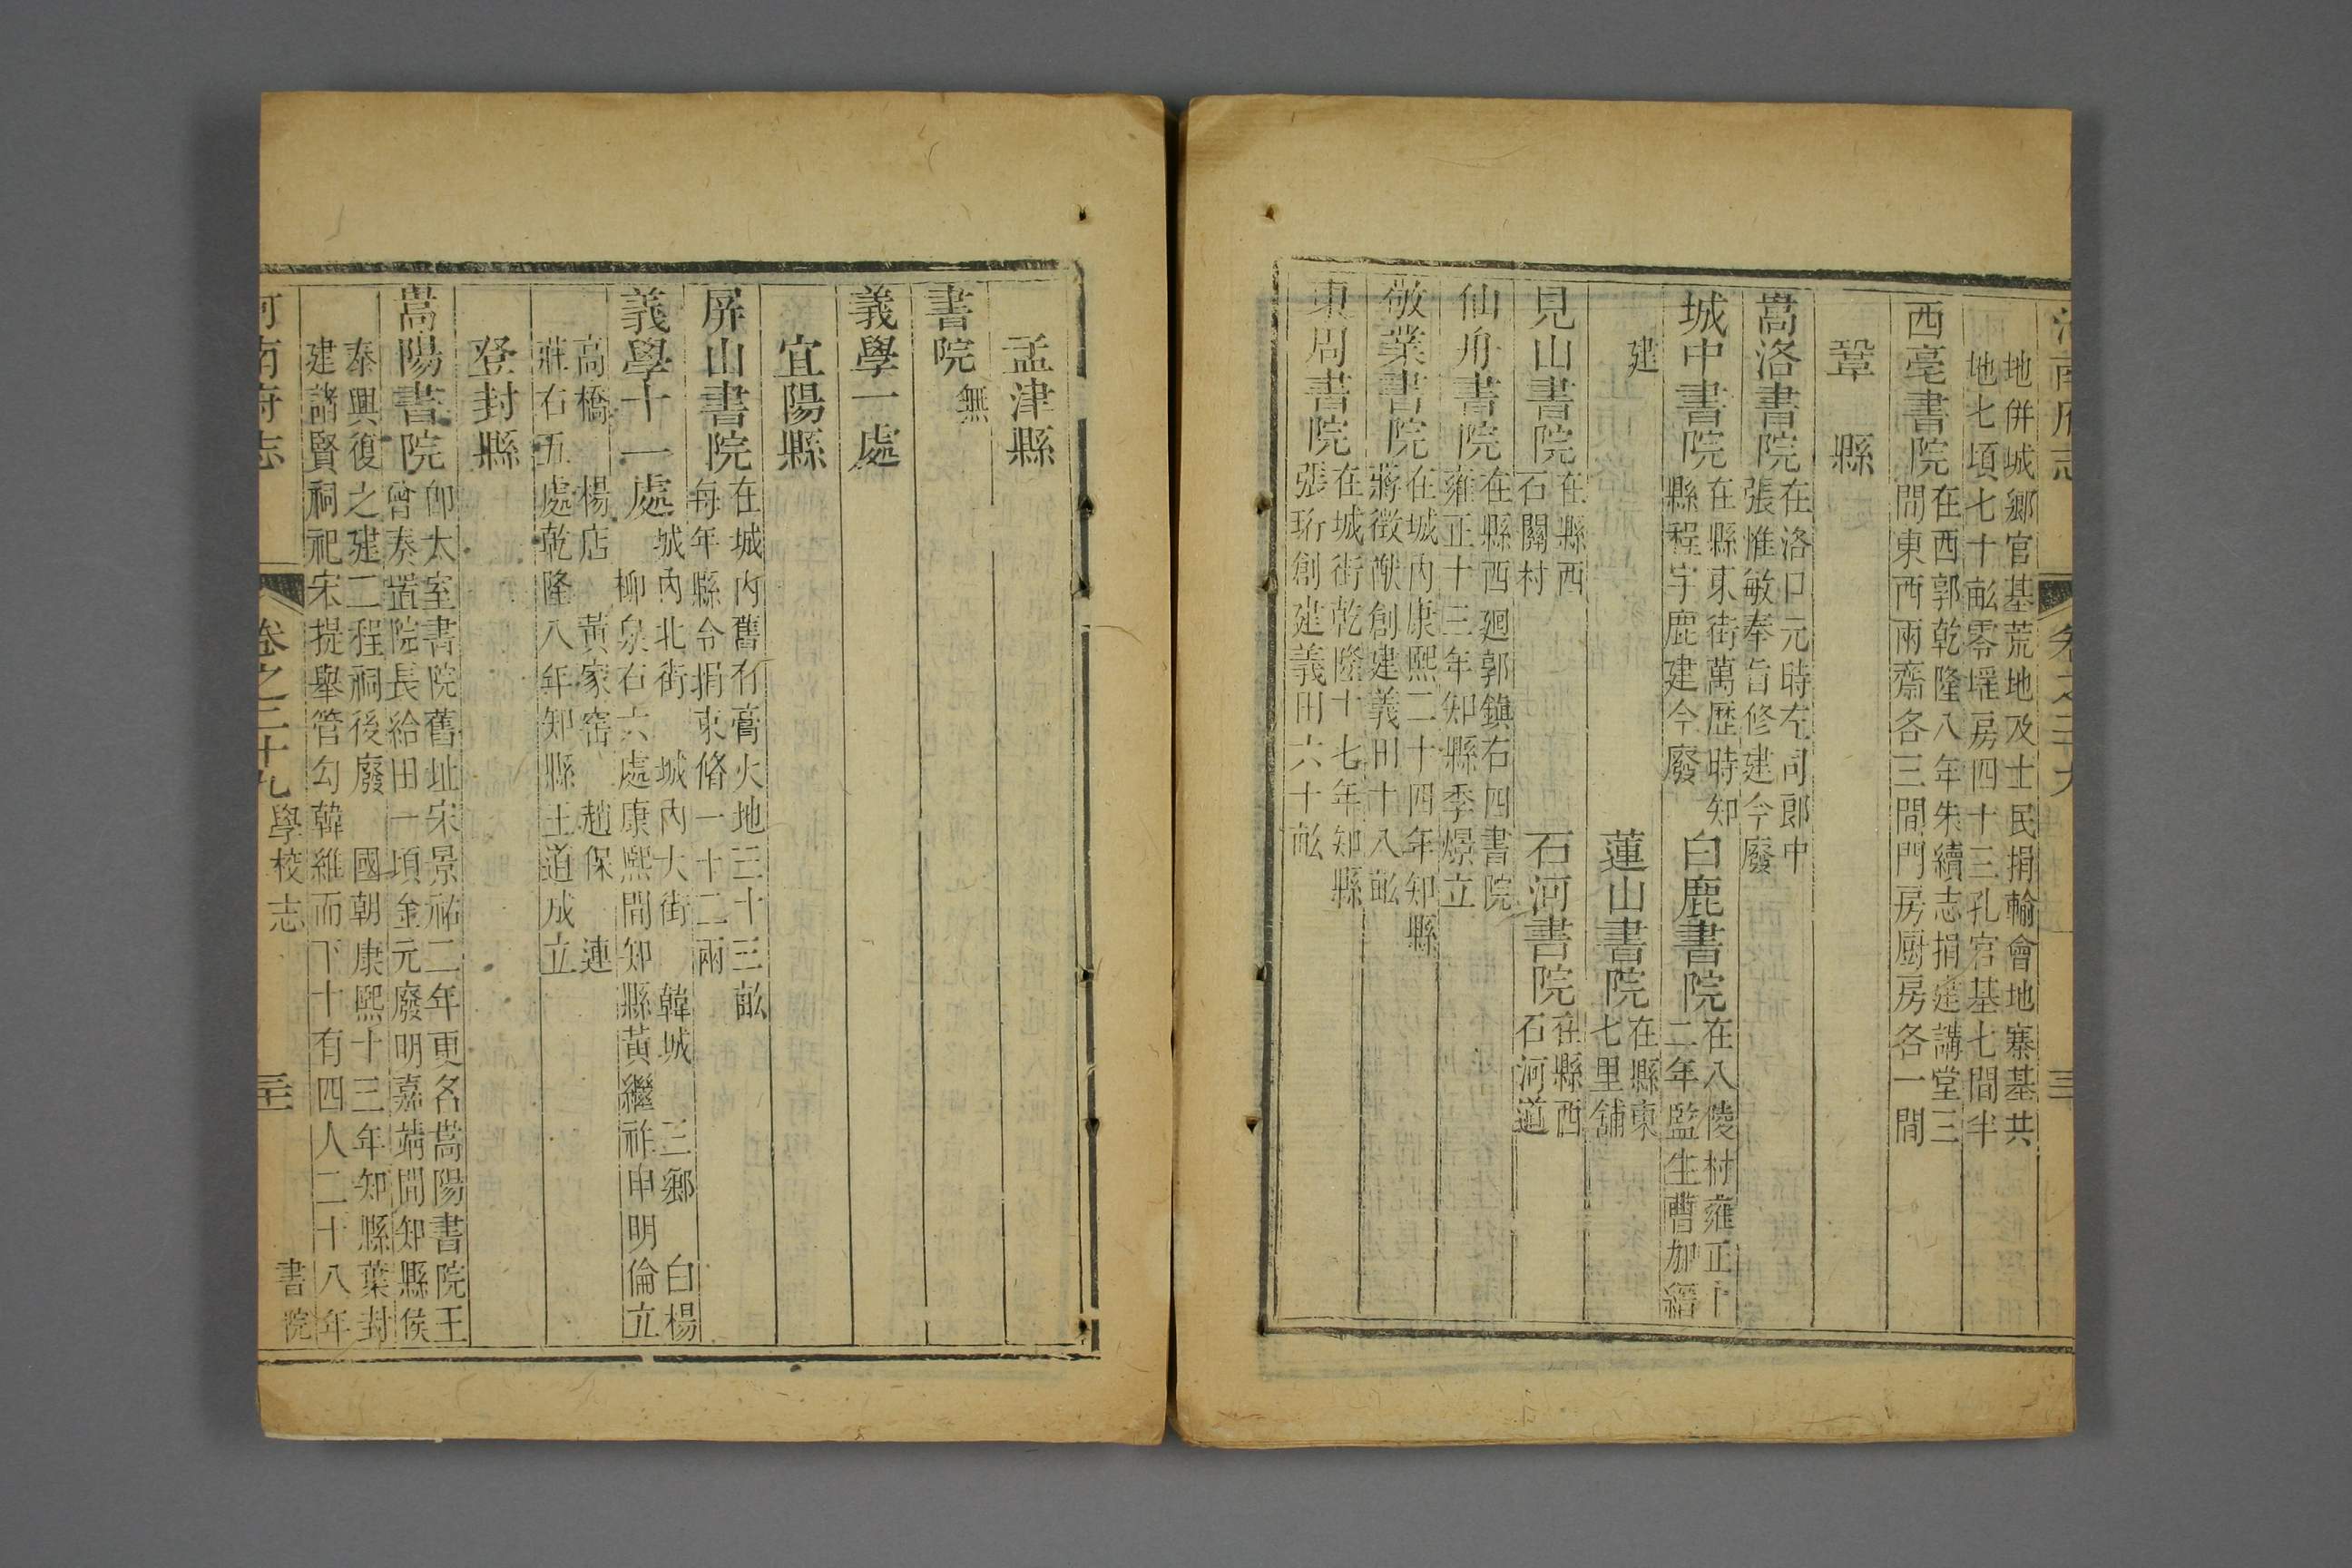 河南府志
地併城鄉官基荒地及士民捐輸會地寨基共
地七頃七十畝零墔房四十三孔窑基七間半
西亳書院
在西郭乾隆八年朱續志捐建講堂三
間東西兩齋各三間門房厨房各一間
鞏縣
嵩洛書院
在洛口元時左司郎中
張惟敏奉旨修建今廢
城中書院
在縣東街萬歷時知
縣程宇鹿建今廢
白鹿書院
在八陵村雍正十
二年監生曹加縉
建
蓮山書院
在縣東
七里舖
見山書院
在縣西
石關村
石河書院
在縣西
石河道
仙舟書院
在縣西廻郭鎮右四書院
雍正十三年知縣季璟立
敬業書院
在城内康熙二十四年知縣
蔣徵猷創建義田十八畝
東周書院
在城街乾隆十七年知縣
張珩創建義田六十畝
孟津縣
書院 無
義學一處
宜陽縣
屏山書院
在城内舊有膏火地三十三畝
每年縣令捐束脩一十二兩
義學十一處
城內北街 城內大街 韓城 三鄉 白楊
柳泉右六處康熙間知縣黃繼祚申明倫立
高橋 楊店 黃家窑 趙保 連
莊右五處乾隆八年知縣王道成立
登封縣
嵩陽書院
卽太室書院舊址宋景祐二年更名嵩陽書院王
曾奏置院長給田一頃金元廢明嘉靖間知縣侯
泰興復之建二程祠後廢 國朝康熙十三年知縣葉封
建諸賢祠祀宋提舉管勾韓維而下十有四人二十八年
河南府志 卷之二十九 學校志 書院